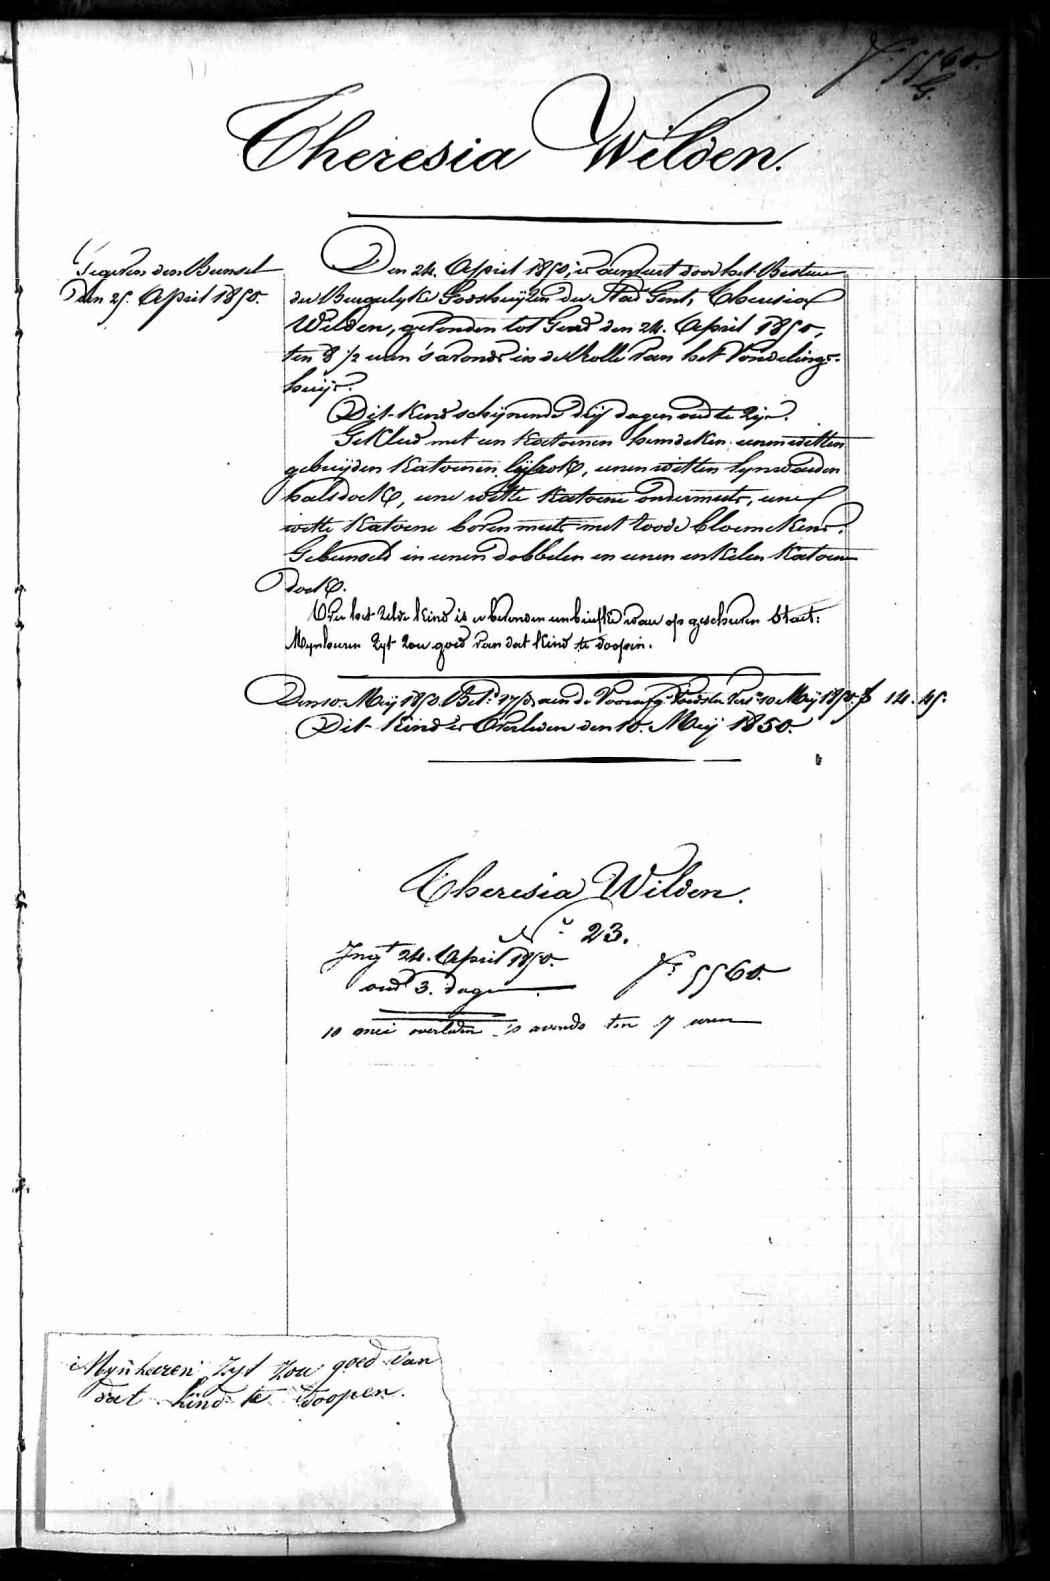 Fo 5560.
G.
Theresia Wilden.
Gegeven den Bunsel
Den 25. April 1850.
Den 24. April 1850, is aenveert door het Bestuur
der Burgerlyke Godshuijzen der Stad Gent, Theresia
Wilden, gevonden tot Gend den 24. April 1850,
ten 8 1/2 uren 's avonds in de Rolle van het Vondelings-
huijs.
Dit Kind schijnende drij dagen oud te zijn.
Gekleed met een Katoenen hemdeken eenen witten
gebreijden Katoenen lijfrok, eenen witten lynwaeden
halsdoek, eene witte Katoene ondermuts, eene
witte Katoene bovenmuts met roode bloemekens.
Gebunseld in eenen dobbelen en eenen enkelen Katoene
doek.
Over het zelve kind is er bevonden een briefke waer op geschreven staet:
Mynheeren zyt zou goed van dat kind te doopen.
Den 10 Meij 1850. Bet. 17 d. aen de Voedster Vers. 10 Meij 1850. f 14. 45.
Dit Kind is Overleden den 10. Meij 1850.
Theresia Wilden.
No 23.
Ingt 24. April 1850.
oud 3. dagen
Fo 5560.
10 mei overleden 's avonds ten 7 uren
Mynheeren Zyt zou goed van
dat kind te doopen.